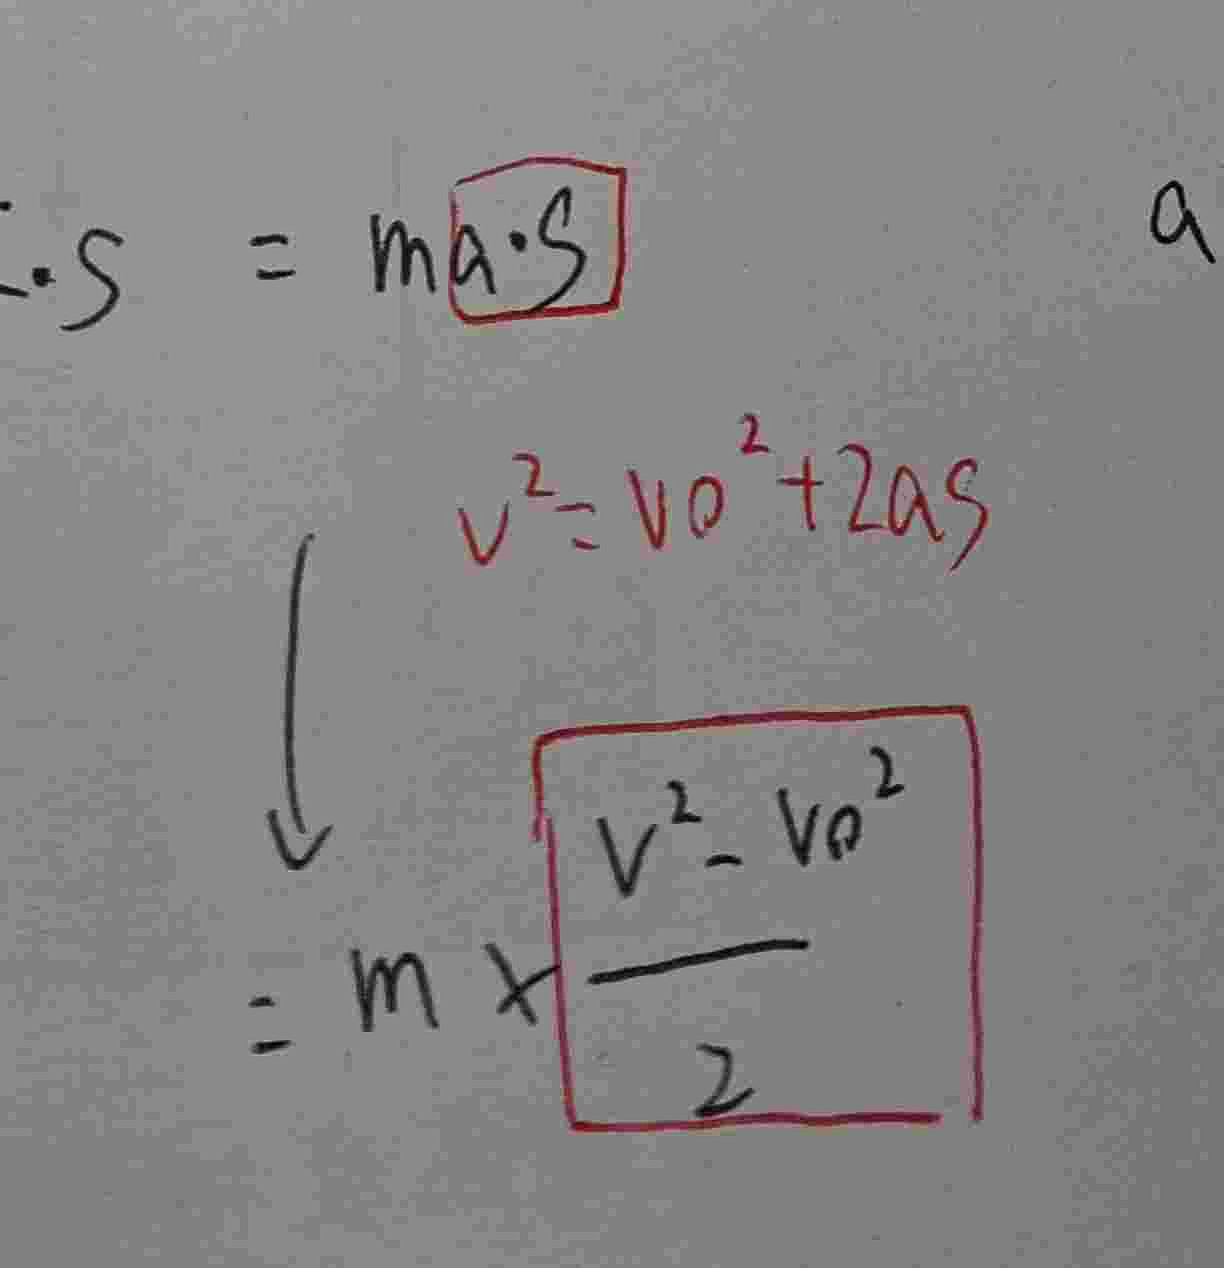 ·S = ma·S a
v² = v0² + 2as
v² - v0²
= m ×
2